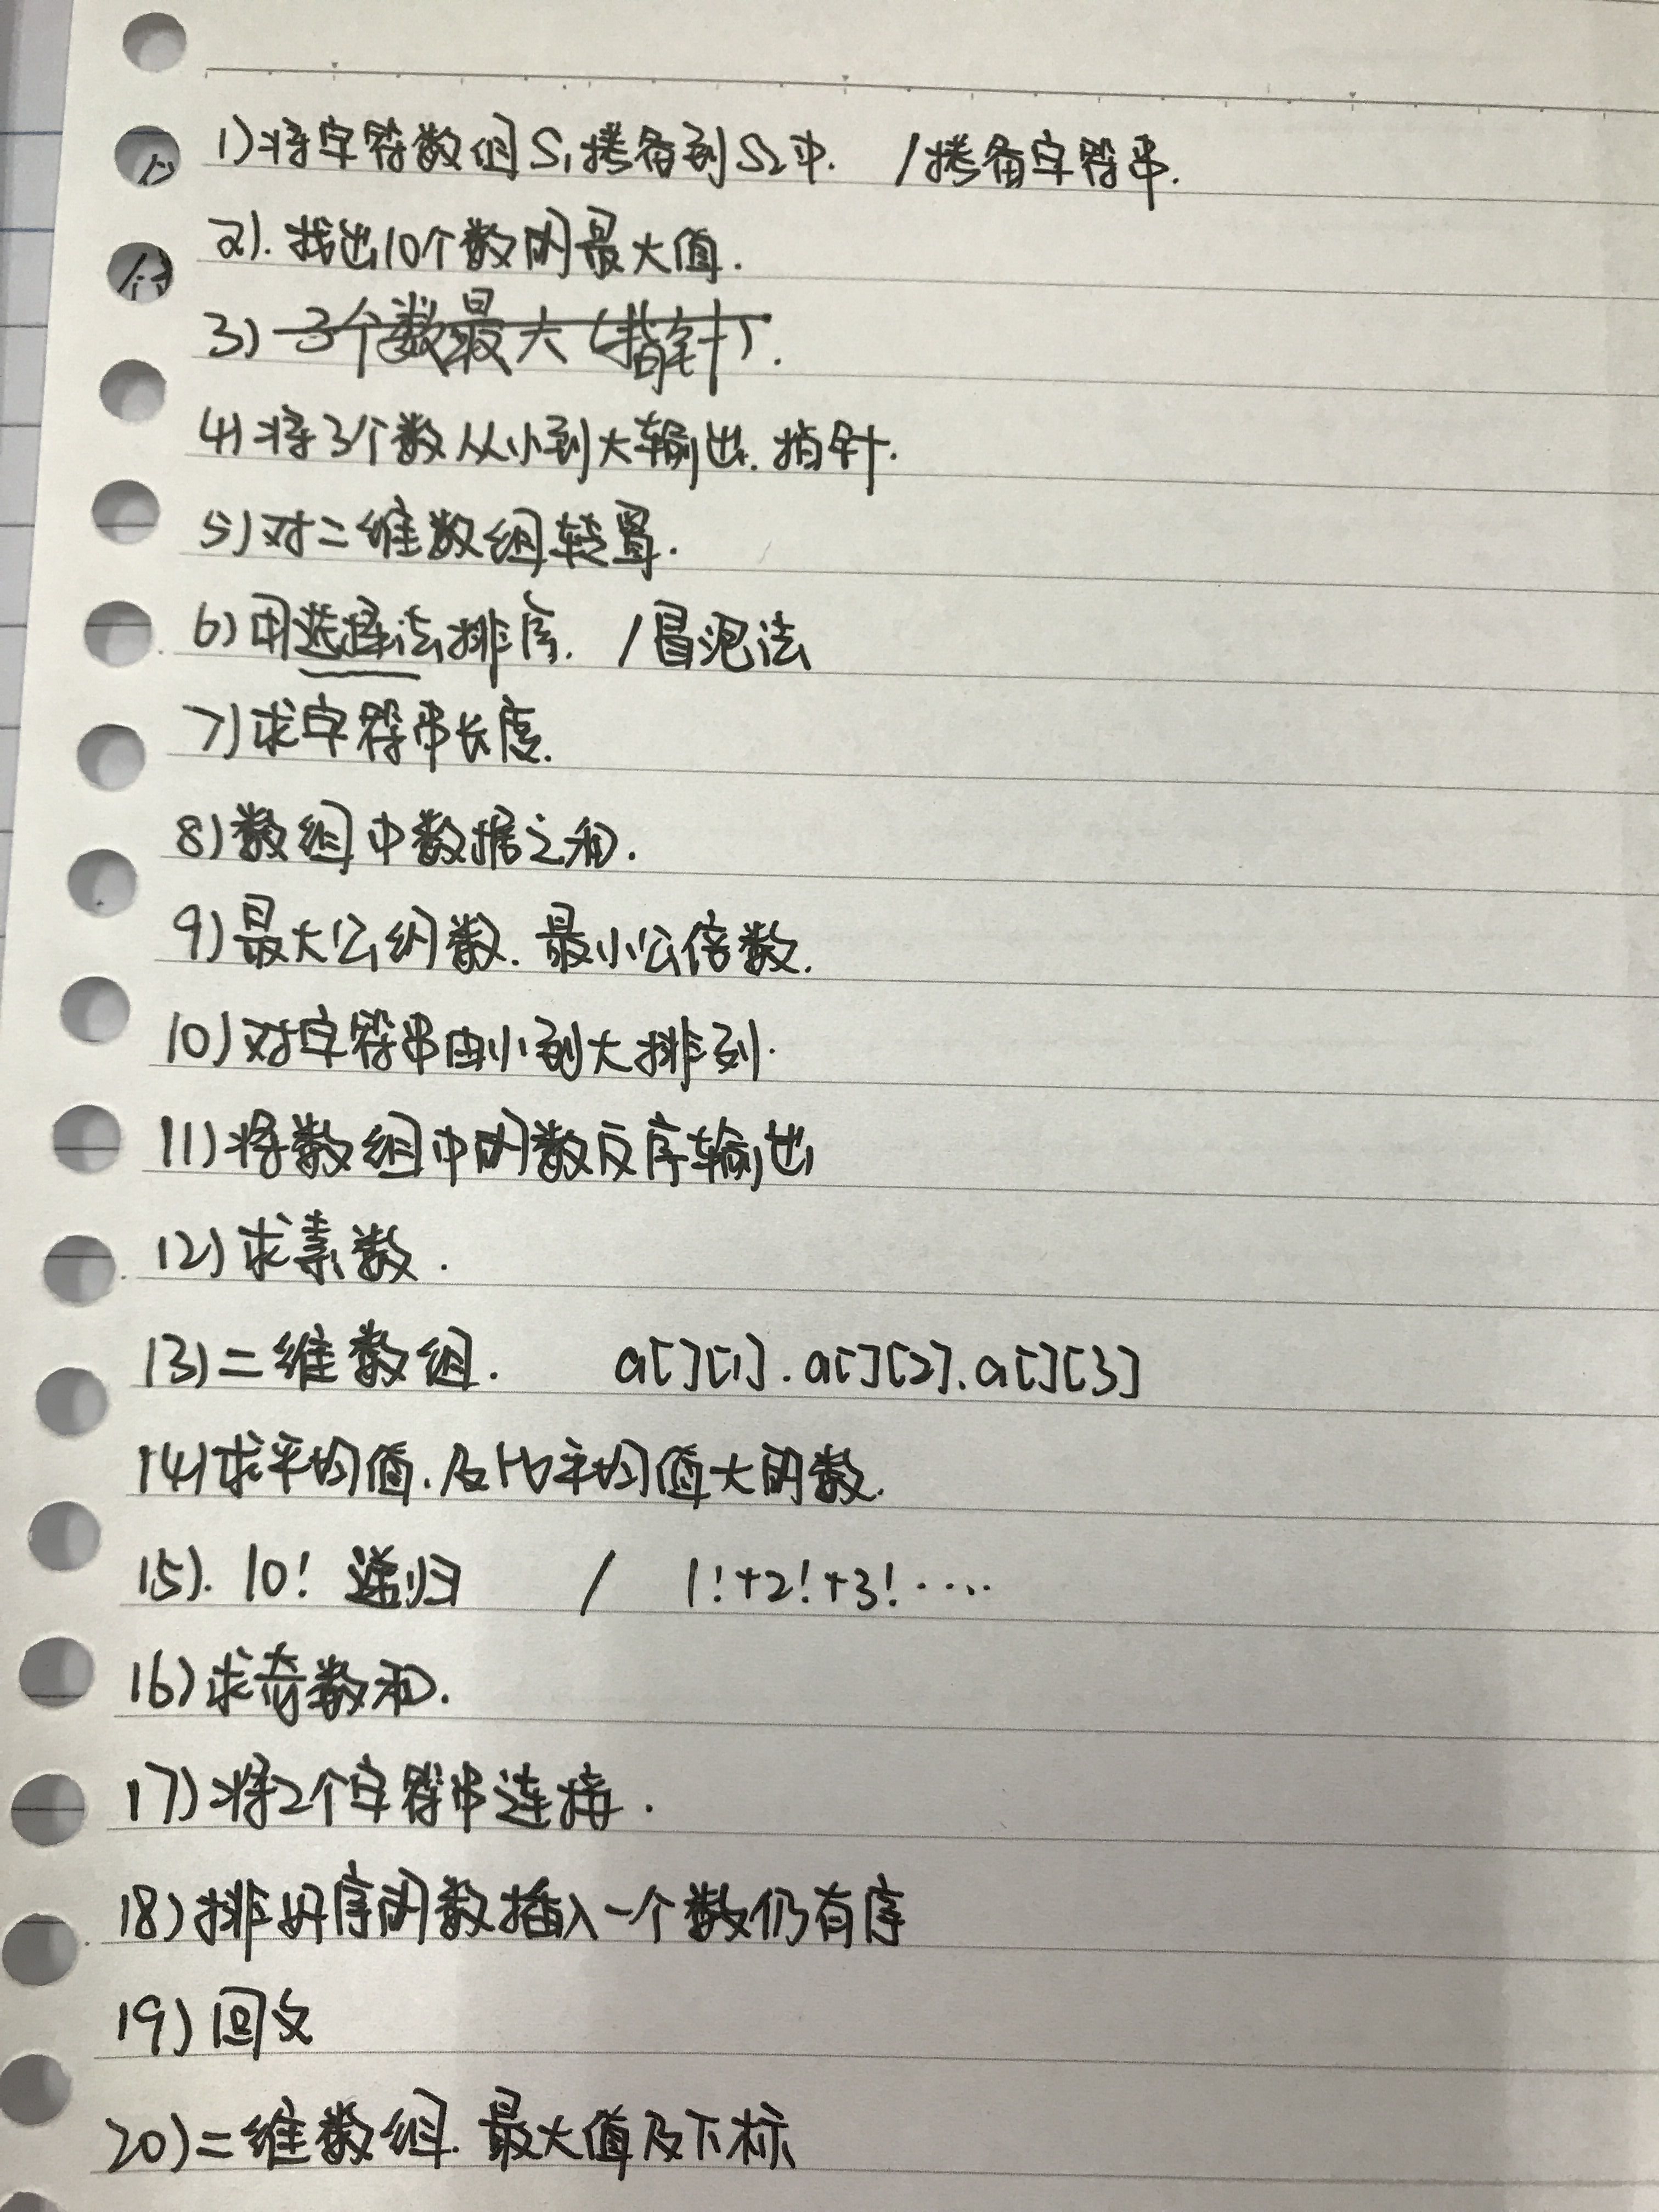 1)将字符数组S1拷备到S2中. /拷备字符串.
2).找出10个数的最大值.
3)3个数最大(指针).
4)将3个数从小到大输出.指针.
5)对二维数组转置.
6)用选择法排序. /冒泡法
7)求字符串长度.
8)数组中数据之和.
9)最大公约数.最小公倍数.
10)对字符串由小到大排列.
11)将数组中的数反序输出
12)求素数.
13)二维数组. a[][1].a[][2].a[][3]
14)求平均值.及比平均值大的数.
15).10!递归 / 1!+2!+3!.....
16)求奇数和.
17)将2个字符串连接.
18)排好序的数插入一个数仍有序
19)回文
20)二维数组.最大值及下标